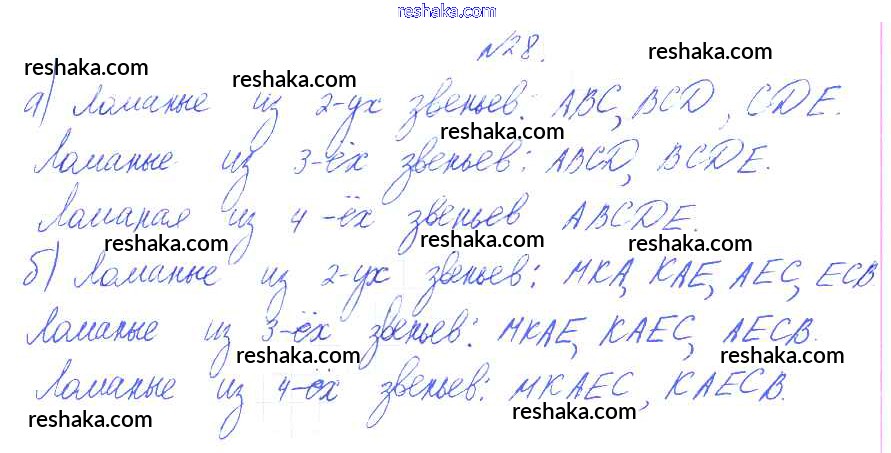 reshaka.com
№28.
reshaka.com
reshaka.com
reshaka.com
а) Ломаные из 2-ух звеньев: ABC, BCD, CDE.
reshaka.com
Ломаные из 3-ёх звеньев: ABCD, BCDE.
Ломаная из 4-ёх звеньев ABCDE.
reshaka.com
reshaka.com
reshaka.com
б) Ломаные из 2-ух звеньев: MKA, KAE, AEC, ECB
Ломаные из 3-ёх звеньев: MKAE, KAEC, AECB.
reshaka.com
reshaka.com
Ломаные из 4-ёх звеньев: MKAEC, KAECB.
reshaka.com
reshaka.com